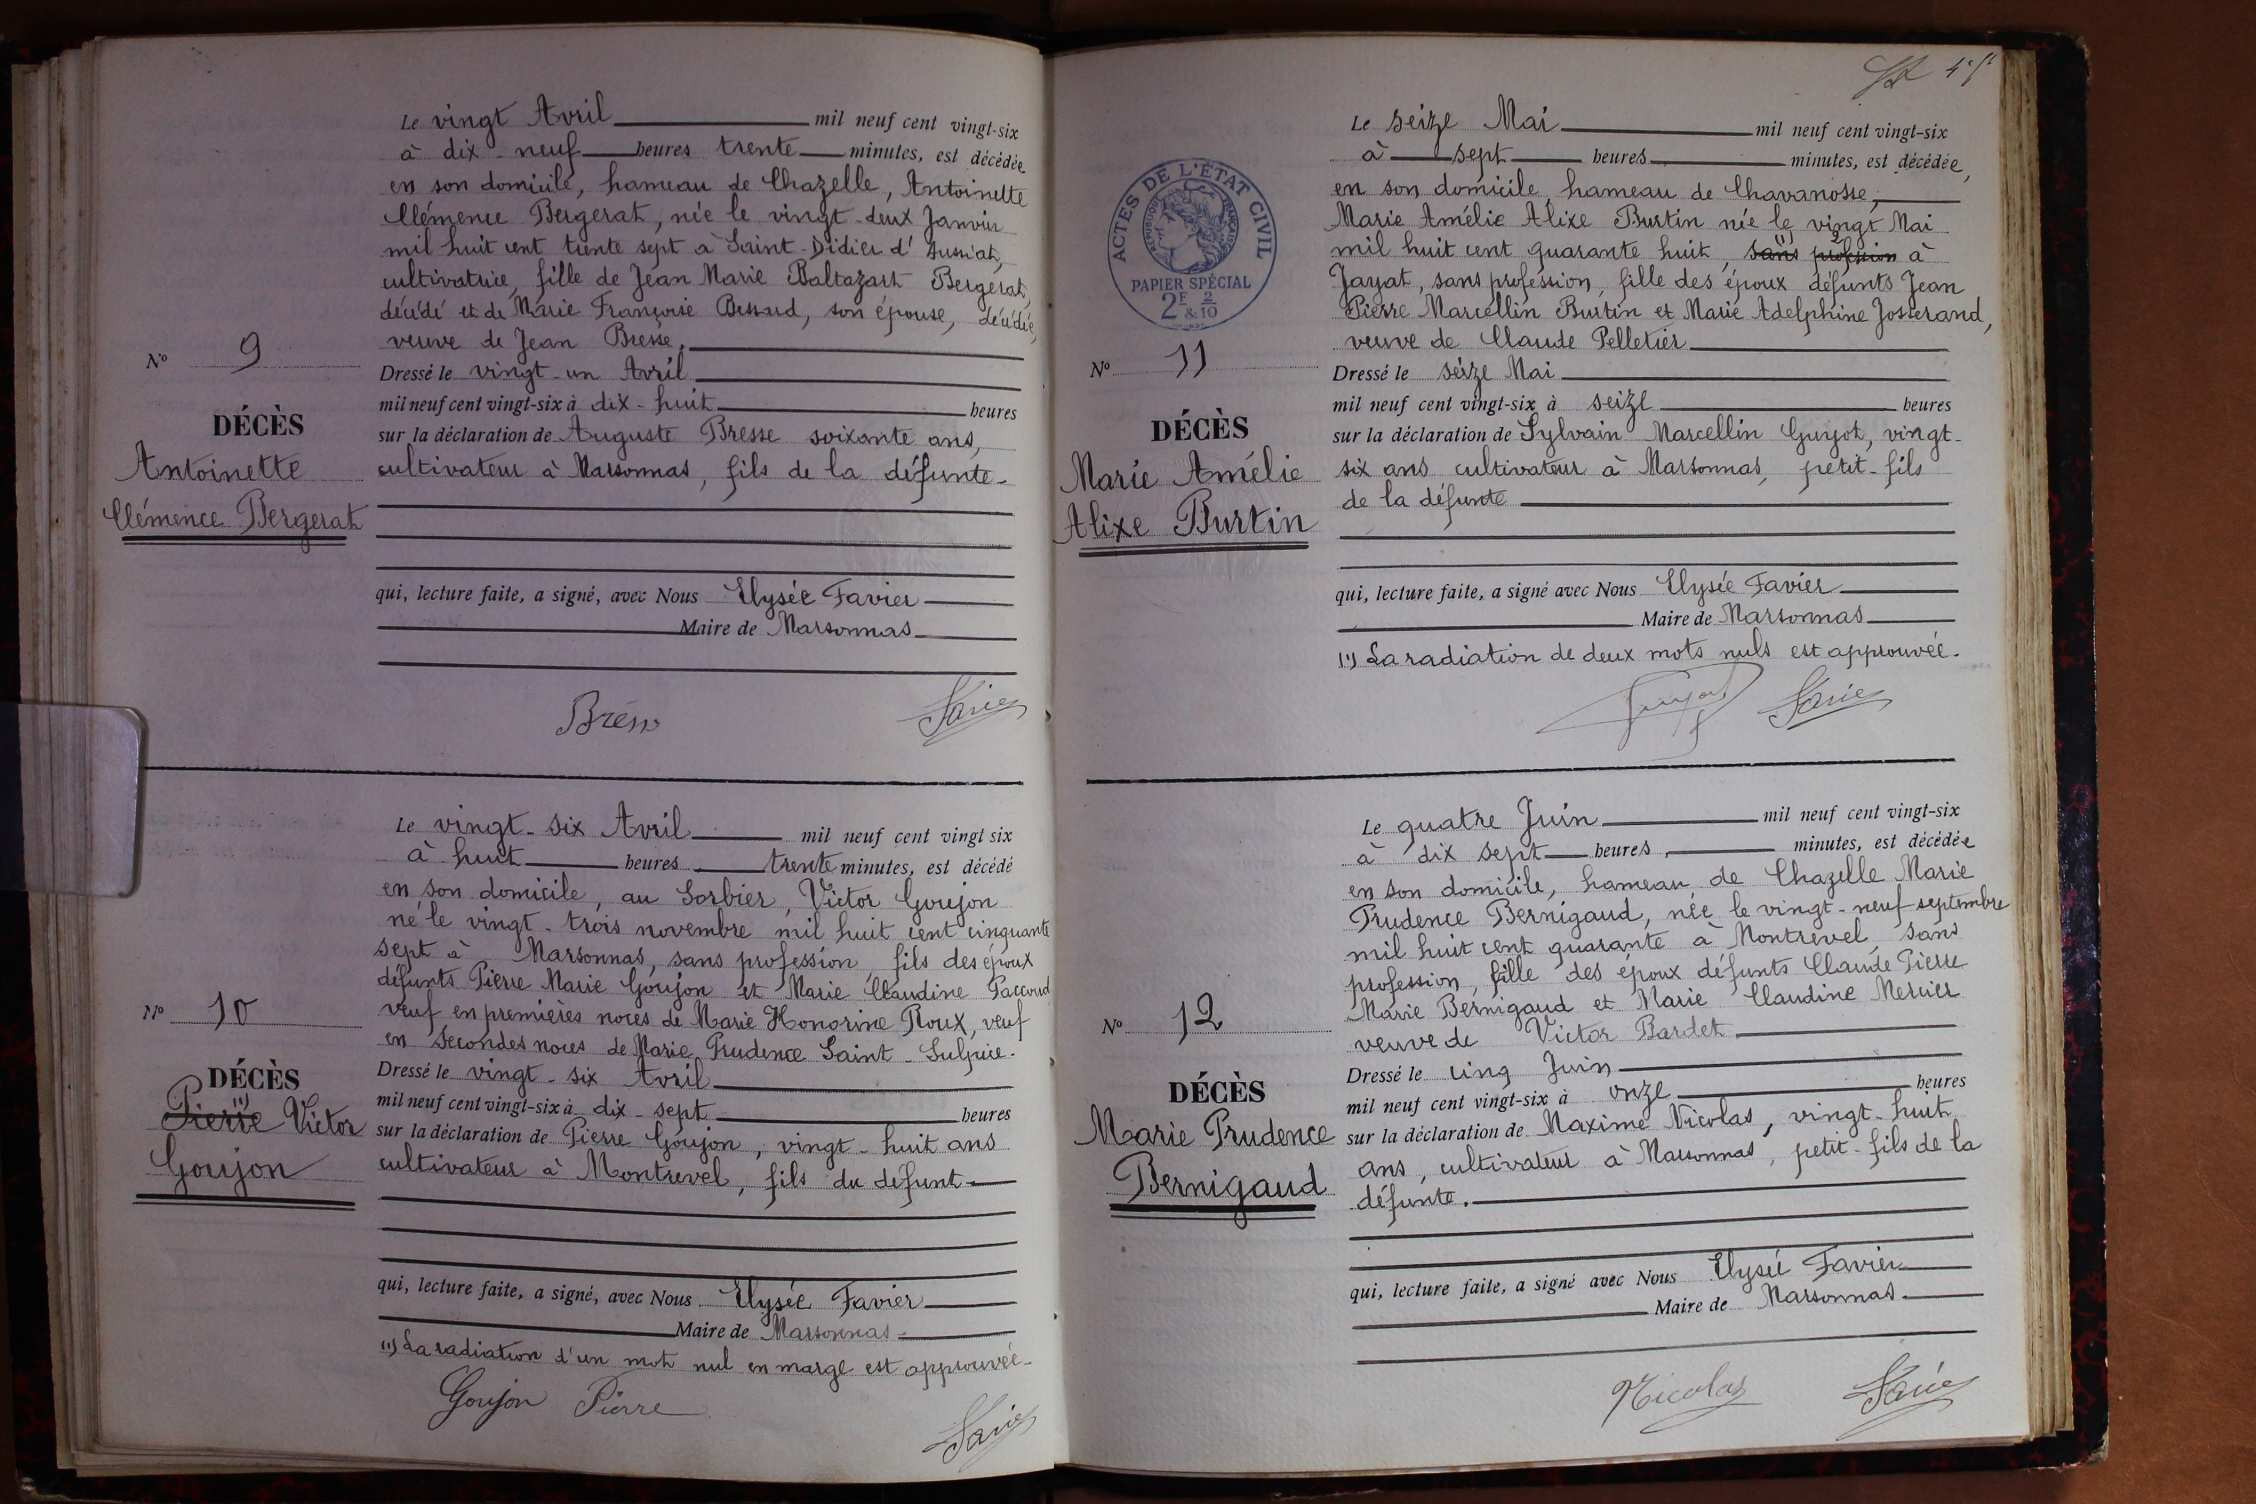 Le vingt Avril mil neuf cent vingt-six
à dix-neuf heures trente minutes, est décédée
en son domicile, hameau de Chazelle, Antoinette
Clémence Bergerat, née le vingt-deux Janvier
mil huit cent trente sept à Saint-Didier d'Aussiat,
cultivatrice, fille de Jean Marie Baltazart Bergerat,
décédé et de Marie Françoise Bessard, son épouse, décédée,
veuve de Jean Bresse.
Dressé le vingt-un Avril
mil neuf cent vingt-six à dix-huit heures
sur la déclaration de Auguste Bresse soixante ans,
cultivateur à Marsonnas, fils de la défunte.
qui, lecture faite, a signé, avec Nous Elysée Favier
Maire de Marsonnas
Bresse
Favier
N° 9
DÉCÈS
Antoinette
Clémence Bergerat
Le vingt-six Avril mil neuf cent vingt six
à huit heures trente minutes, est décédé
en son domicile, au Sorbier, Victor Goujon
né le vingt-trois novembre mil huit cent cinquante
sept à Marsonnas, sans profession, fils des époux
défunts Pierre Marie Goujon et Marie Claudine Paccoud
veuf en premières noces de Marie Honorine Roux, veuf
en secondes noces de Marie Prudence Saint-Sulpice.
Dressé le vingt-six Avril
mil neuf cent vingt-six à dix-sept heures
sur la déclaration de Pierre Goujon, vingt-huit ans
cultivateur à Montrevel, fils du défunt
qui, lecture faite, a signé, avec Nous Elysée Favier
Maire de Marsonnas
(1) La radiation d'un mot nul en marge est approuvée.
Goujon Pierre
Favier
N° 10
DÉCÈS
Pierre (1) Victor
Goujon
Le seize Mai mil neuf cent vingt-six
à sept heures minutes, est décédée,
en son domicile, hameau de Chavanosse,
Marie Amélie Alixe Burtin née le vingt Mai
mil huit cent quarante huit, sans profession (1) à
Jayat, sans profession, fille des époux défunts Jean
Pierre Marcellin Burtin et Marie Adelphine Josserand,
veuve de Claude Pelletier
Dressé le seize Mai
mil neuf cent vingt-six à seize heures
sur la déclaration de Sylvain Marcellin Guyot, vingt-
six ans cultivateur à Marsonnas, petit-fils
de la défunte
qui, lecture faite, a signé avec Nous Elysée Favier
Maire de Marsonnas
(1) La radiation de deux mots nuls est approuvée.
Guyot
Favier
ACTES DE L'ÉTAT CIVIL
RÉPUBLIQUE FRANÇAISE
PAPIER SPÉCIAL
2F & 2/10
N° 11
DÉCÈS
Marie Amélie
Alixe Burtin
Le quatre Juin mil neuf cent vingt-six
à dix sept heures, minutes, est décédée
en son domicile, hameau de Chazelle Marie
Prudence Bernigaud, née le vingt-neuf septembre
mil huit cent quarante à Montrevel, sans
profession, fille des époux défunts Claude Pierre
Marie Bernigaud et Marie Claudine Mercier
veuve de Victor Bardet
Dressé le cinq Juin
mil neuf cent vingt-six à onze heures
sur la déclaration de Maxime Nicolas, vingt-huit
ans, cultivateur à Marsonnas, petit-fils de la
défunte.
qui, lecture faite, a signé avec Nous Elysée Favier
Maire de Marsonnas
Nicolas
Favier
N° 12
DÉCÈS
Marie Prudence
Bernigaud